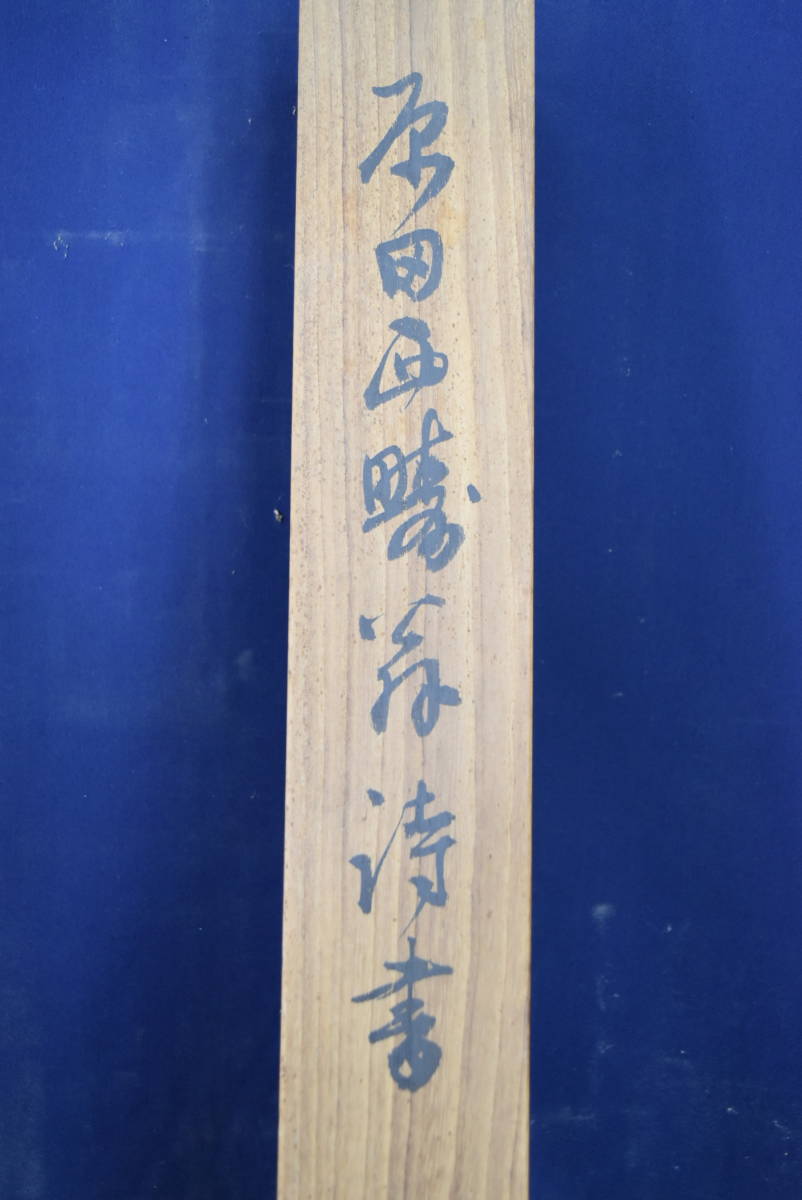 原田西疇翁詩書